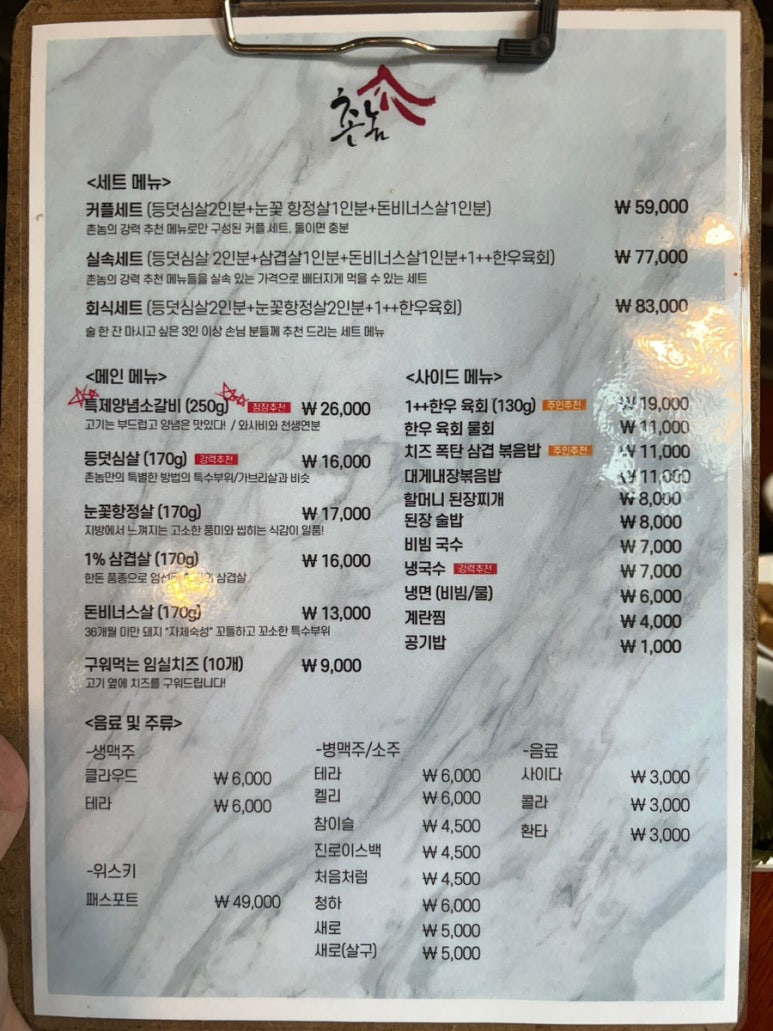 촌놈
<세트 메뉴>
커플세트 (등덧심살2인분+눈꽃 항정살1인분+돈비너스살1인분) ₩ 59,000
촌놈의 강력 추천 메뉴로만 구성된 커플 세트, 둘이면 충분
실속세트 (등덧심살 2인분+삼겹살1인분+돈비너스살1인분+1++한우육회) ₩ 77,000
촌놈의 강력 추천 메뉴들을 실속 있는 가격으로 배터지게 먹을 수 있는 세트
회식세트 (등덧심살2인분+눈꽃항정살2인분+1++한우육회) ₩ 83,000
술 한 잔 마시고 싶은 3인 이상 손님 분들께 추천 드리는 세트 메뉴
<메인 메뉴>
특제양념소갈비 (250g) 점장추천 ₩ 26,000
고기는 부드럽고 양념은 맛있다! / 와사비와 천생연분
등덧심살 (170g) 강력추천 ₩ 16,000
촌놈만의 특별한 방법의 특수부위/가브리살과 비슷
눈꽃항정살 (170g) ₩ 17,000
지방에서 느껴지는 고소한 풍미와 씹히는 식감이 일품!
1% 삼겹살 (170g) ₩ 16,000
한돈 품종으로 삼겹살
돈비너스살 (170g) ₩ 13,000
36개월 미만 돼지 "자체숙성" 꼬들하고 꼬소한 특수부위
구워먹는 임실치즈 (10개) ₩ 9,000
고기 옆에 치즈를 구워드립니다!
<사이드 메뉴>
1++한우 육회 (130g) 주인추천 ₩ 19,000
한우 육회 물회 ₩ 11,000
치즈 폭탄 삼겹 볶음밥 주인추천 ₩ 11,000
대게내장볶음밥 ₩ 11,000
할머니 된장찌개 ₩ 8,000
된장 술밥 ₩ 8,000
비빔 국수 ₩ 7,000
냉국수 강력추천 ₩ 7,000
냉면 (비빔/물) ₩ 6,000
계란찜 ₩ 4,000
공기밥 ₩ 1,000
<음료 및 주류>
-생맥주
클라우드 ₩ 6,000
테라 ₩ 6,000
-위스키
패스포트 ₩ 49,000
-병맥주/소주
테라 ₩ 6,000
켈리 ₩ 6,000
참이슬 ₩ 4,500
진로이스백 ₩ 4,500
처음처럼 ₩ 4,500
청하 ₩ 6,000
새로 ₩ 5,000
새로(살구) ₩ 5,000
-음료
사이다 ₩ 3,000
콜라 ₩ 3,000
환타 ₩ 3,000